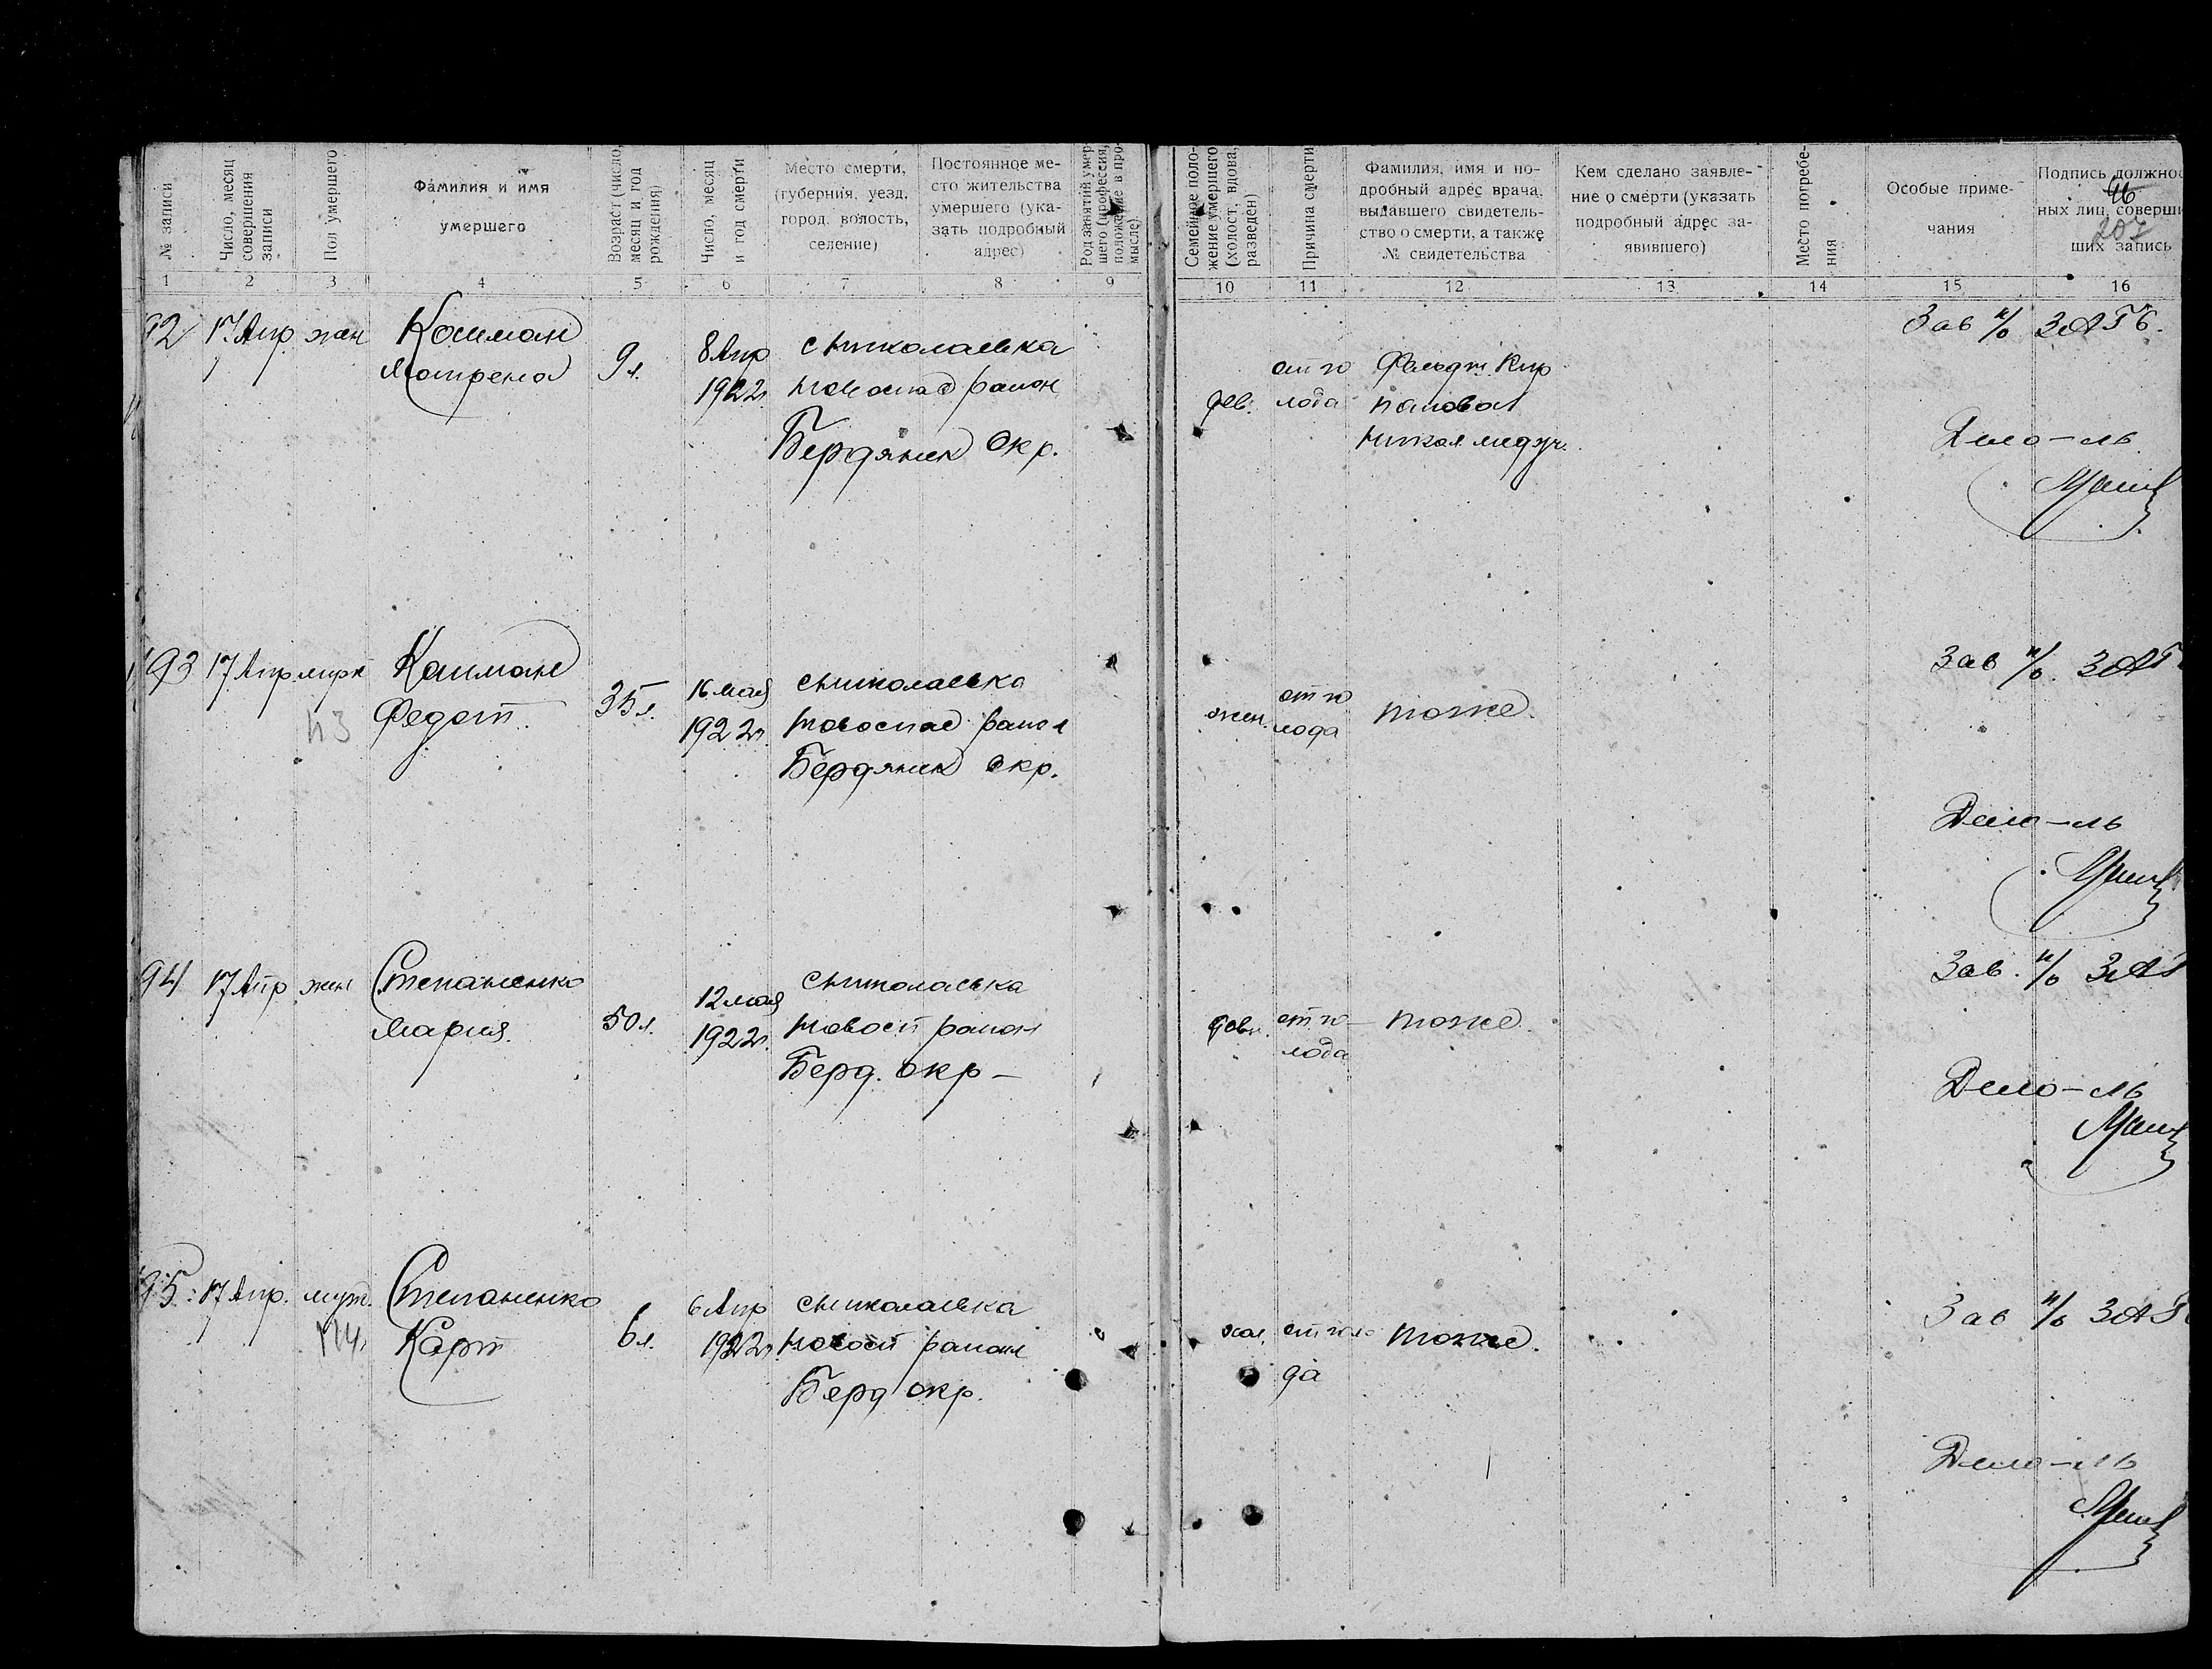 № записи
Число, месяц совершения записи
Пол умершего
Фамилия и имя умершего
Возраст (число, месяц и год рождения)
Число, месяц и год смерти
Место смерти, (губерния, уезд, город, волость, селение)
Постоянное место жительства умершего (указать подробный адрес)
Род занятий умершего (профессия, положение в промысле)
Семейное положение умершего (холост, вдова, разведен)
Причина смерти
Фамилия, имя и подробный адрес врача, выдавшего свидетельство о смерти, а также № свидетельства
Кем сделано заявление о смерти (указать подробный адрес заявившего)
Место погребения
Особые примечания
Подпись должностных лиц, совершивших запись
46
207
1 2 3 4 5 6 7 8 9 10 11 12 13 14 15 16
92 17 Апр жен Кошман
Матрена
9 л.
8 Апр
1922 г.
с Николаевка
Новоспас район
Бердянск Окр.
дев.
от го
лода
Фельдш.
Зав п/о ЗАГС.
Дело-ль
93 17 Апр муж Кашман
Федот.
н3
35 л.
16 мая
1922 г.
с Николаевка
Новоспас район
Бердянск Окр.
жен.
от го
лода
тоже.
Зав п/о. ЗАГ
Дело-ль
94 17 Апр жен Степаненко
Мария.
50 л.
12 мая
1922 г.
с Николаевка
Новосп район
Берд. Окр-
от го-
лода
тоже.
Зав. п/о ЗАГ
Дело-ль
95 17 Апр. муж. Степаненко
Карп
6 л.
6 Апр
1922 г.
с Николаевка
Новосп район
Берд окр.
хол.
от голо
да
тоже.
Зав п/о ЗАГ
Дело-ль